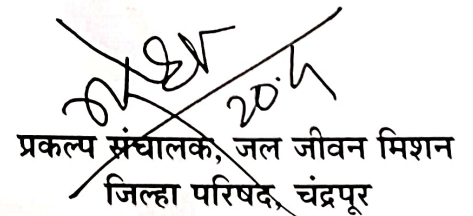 20.5
प्रकल्प संचालक, जल जीवन मिशन
जिल्हा परिषद, चंद्रपूर